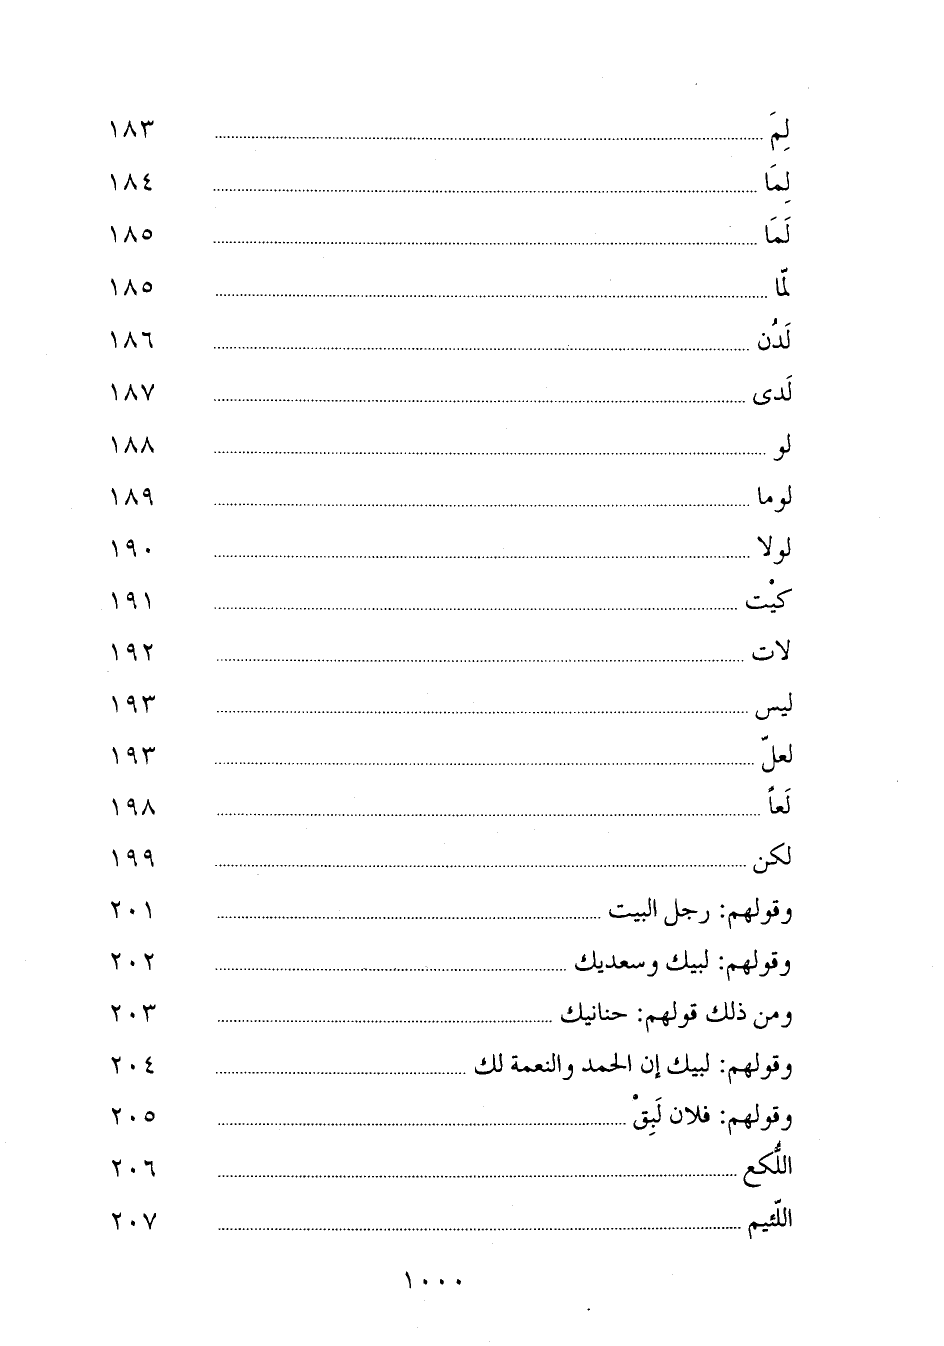 لِمَ ........ ١٨٣
لِمَا ........ ١٨٤
لَمَا ........ ١٨٥
لمّا ........ ١٨٥
لَدُن ........ ١٨٦
لَدى ........ ١٨٧
لو ........ ١٨٨
لوما ........ ١٨٩
لولا ........ ١٩٠
كيْت ........ ١٩١
لات ........ ١٩٢
ليس ........ ١٩٣
لعلّ ........ ١٩٣
لَعاً ........ ١٩٨
لكن ........ ١٩٩
وقولهم: رجل البيت ........ ٢٠١
وقولهم: لبيك وسعديك ........ ٢٠٢
ومن ذلك قولهم: حنانيك ........ ٢٠٣
وقولهم: لبيك إن الحمد والنعمة لك ........ ٢٠٤
وقولهم: فلان لَبِقْ ........ ٢٠٥
اللُّكع ........ ٢٠٦
اللّئيم ........ ٢٠٧
١٠٠٠